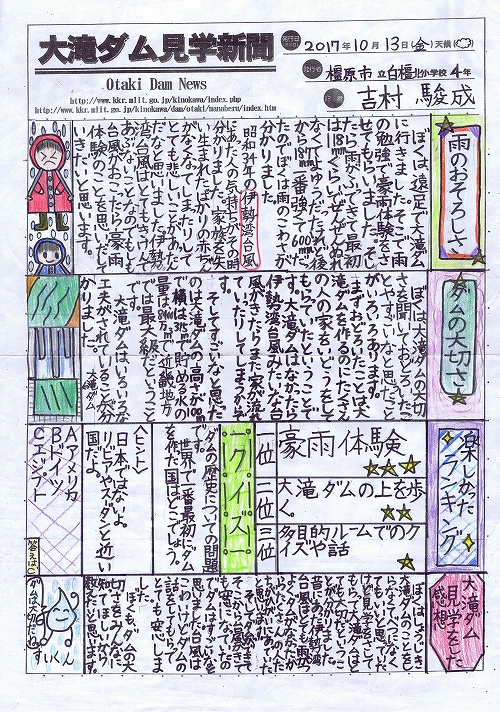 大滝ダム見学新聞
Otaki Dam News
http://www.kkr.mlit.go.jp/kinokawa/index.php
http://www.kkr.mlit.go.jp/kinokawa/dam/otaki/manaberu/index.htm
発行日 2017年10月13日(金)天候
発行者 橿原市立白橿北小学校4年
吉村 駿成
雨のおそろしさ
ぼくは、遠足で大滝ダム
に行きました。そこで雨
の勉強で豪雨体験をさ
せてもらいました。そし
たら雨がふってきて最初
は18mmぐらいでぜんぜんぬれ
なくて
から18mm一番強くて600mmだっ
たのでぼくは雨のこわさが
分かりました。
昭和34年の伊勢湾台風
で
した人の気持ちがその時
に生まれたばかりの赤ちゃん
がなくなってしまったりして
とても悲しいことがあった
んだなと思いました。伊勢
湾台風はとてもきけんで
あぶないことなのでもしも
台風がおこったら豪雨
体験のことを思いだして
いきたいと思います。
ダムの大切さ
ぼくは大滝ダムの大切
さを聞いておどろいたこ
とやすごいなと思ったこと
がいろいろあります。
まずおどろいたことは大
滝ダムを作るのにたくさん
の人の家をいどうをして
もらっていたということで
す。大滝ダムはなかったら
伊勢湾台風みたいな台
風がきたらまた家が流れ
ていったりしてしまうからで
す。
そしてすごいなと思った
のは大滝ダムの高さが100m
で横は315mで貯める水の
最大は8400万m³で近畿地方
では最大級だということ
です。
大滝ダムはいろいろな
工夫がされていることが分
かりました。
大滝ダム
楽しかったランキング
一位 豪雨体験
二位 大滝ダムの上を歩く
三位 多目的ルームでのクイズや話
クイズ
ダムの歴史についての問題
です。
世界で一番最初にダム
を作った国はどこでしょう。
<ヒント>
日本ではないよ。
リビアやスーダンと近い
国だよ。
Aアメリカ
Bドイツ
Cエジプト
答えはC
大滝ダム見学をした感想
ぼくはしょうじき
大滝ダムのことを
けど見学をさして
もらって大滝ダムはと
ても大切ということ
とが分かりました。
昔にあった伊勢湾
台風はとても雨
ダムはすごいなと
思いました。台風は
こわいけどダムの
話をしてもらって
とても安心しま
した。
ぼくも、ダムの大
切さをみんなに
知ってほしいから
教えたいと思います。
ダムは大切だね。
すいくん